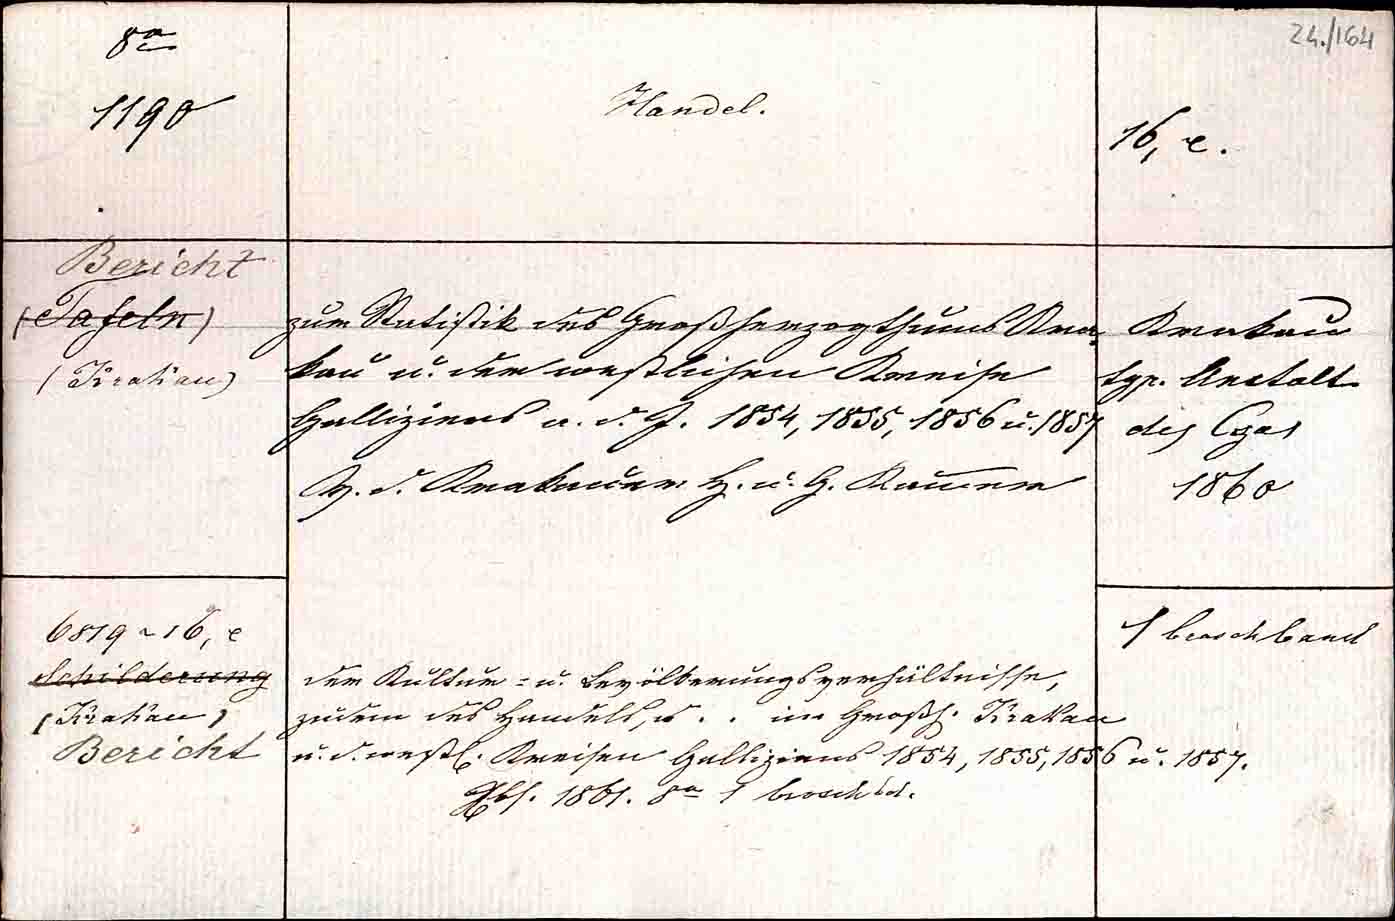 8°
1190
Handel.
24./164
16, e.
Bericht
(Tafeln)
(Krakau)
zur Statistik des Großherzogthums Kra-
kau u. der westlichen Kreise
Galliziens a. d. J. 1854, 1855, 1856 u. 1857
V. d. Krakauer H. u. G. Kammer
Krakau
typ. Anstalt
des Czas
1860
6819 ~ 16, e
Schilderung
(Krakau)
Bericht
1 broschband
der Kultur- u. Bevölkerungsverhältnisse,
zudem des Handels, u . . im Großh. Krakau
u. d. westl. Kreisen Galliziens 1854, 1855, 1856 u. 1857.
1861. 8° 1 broschbd.